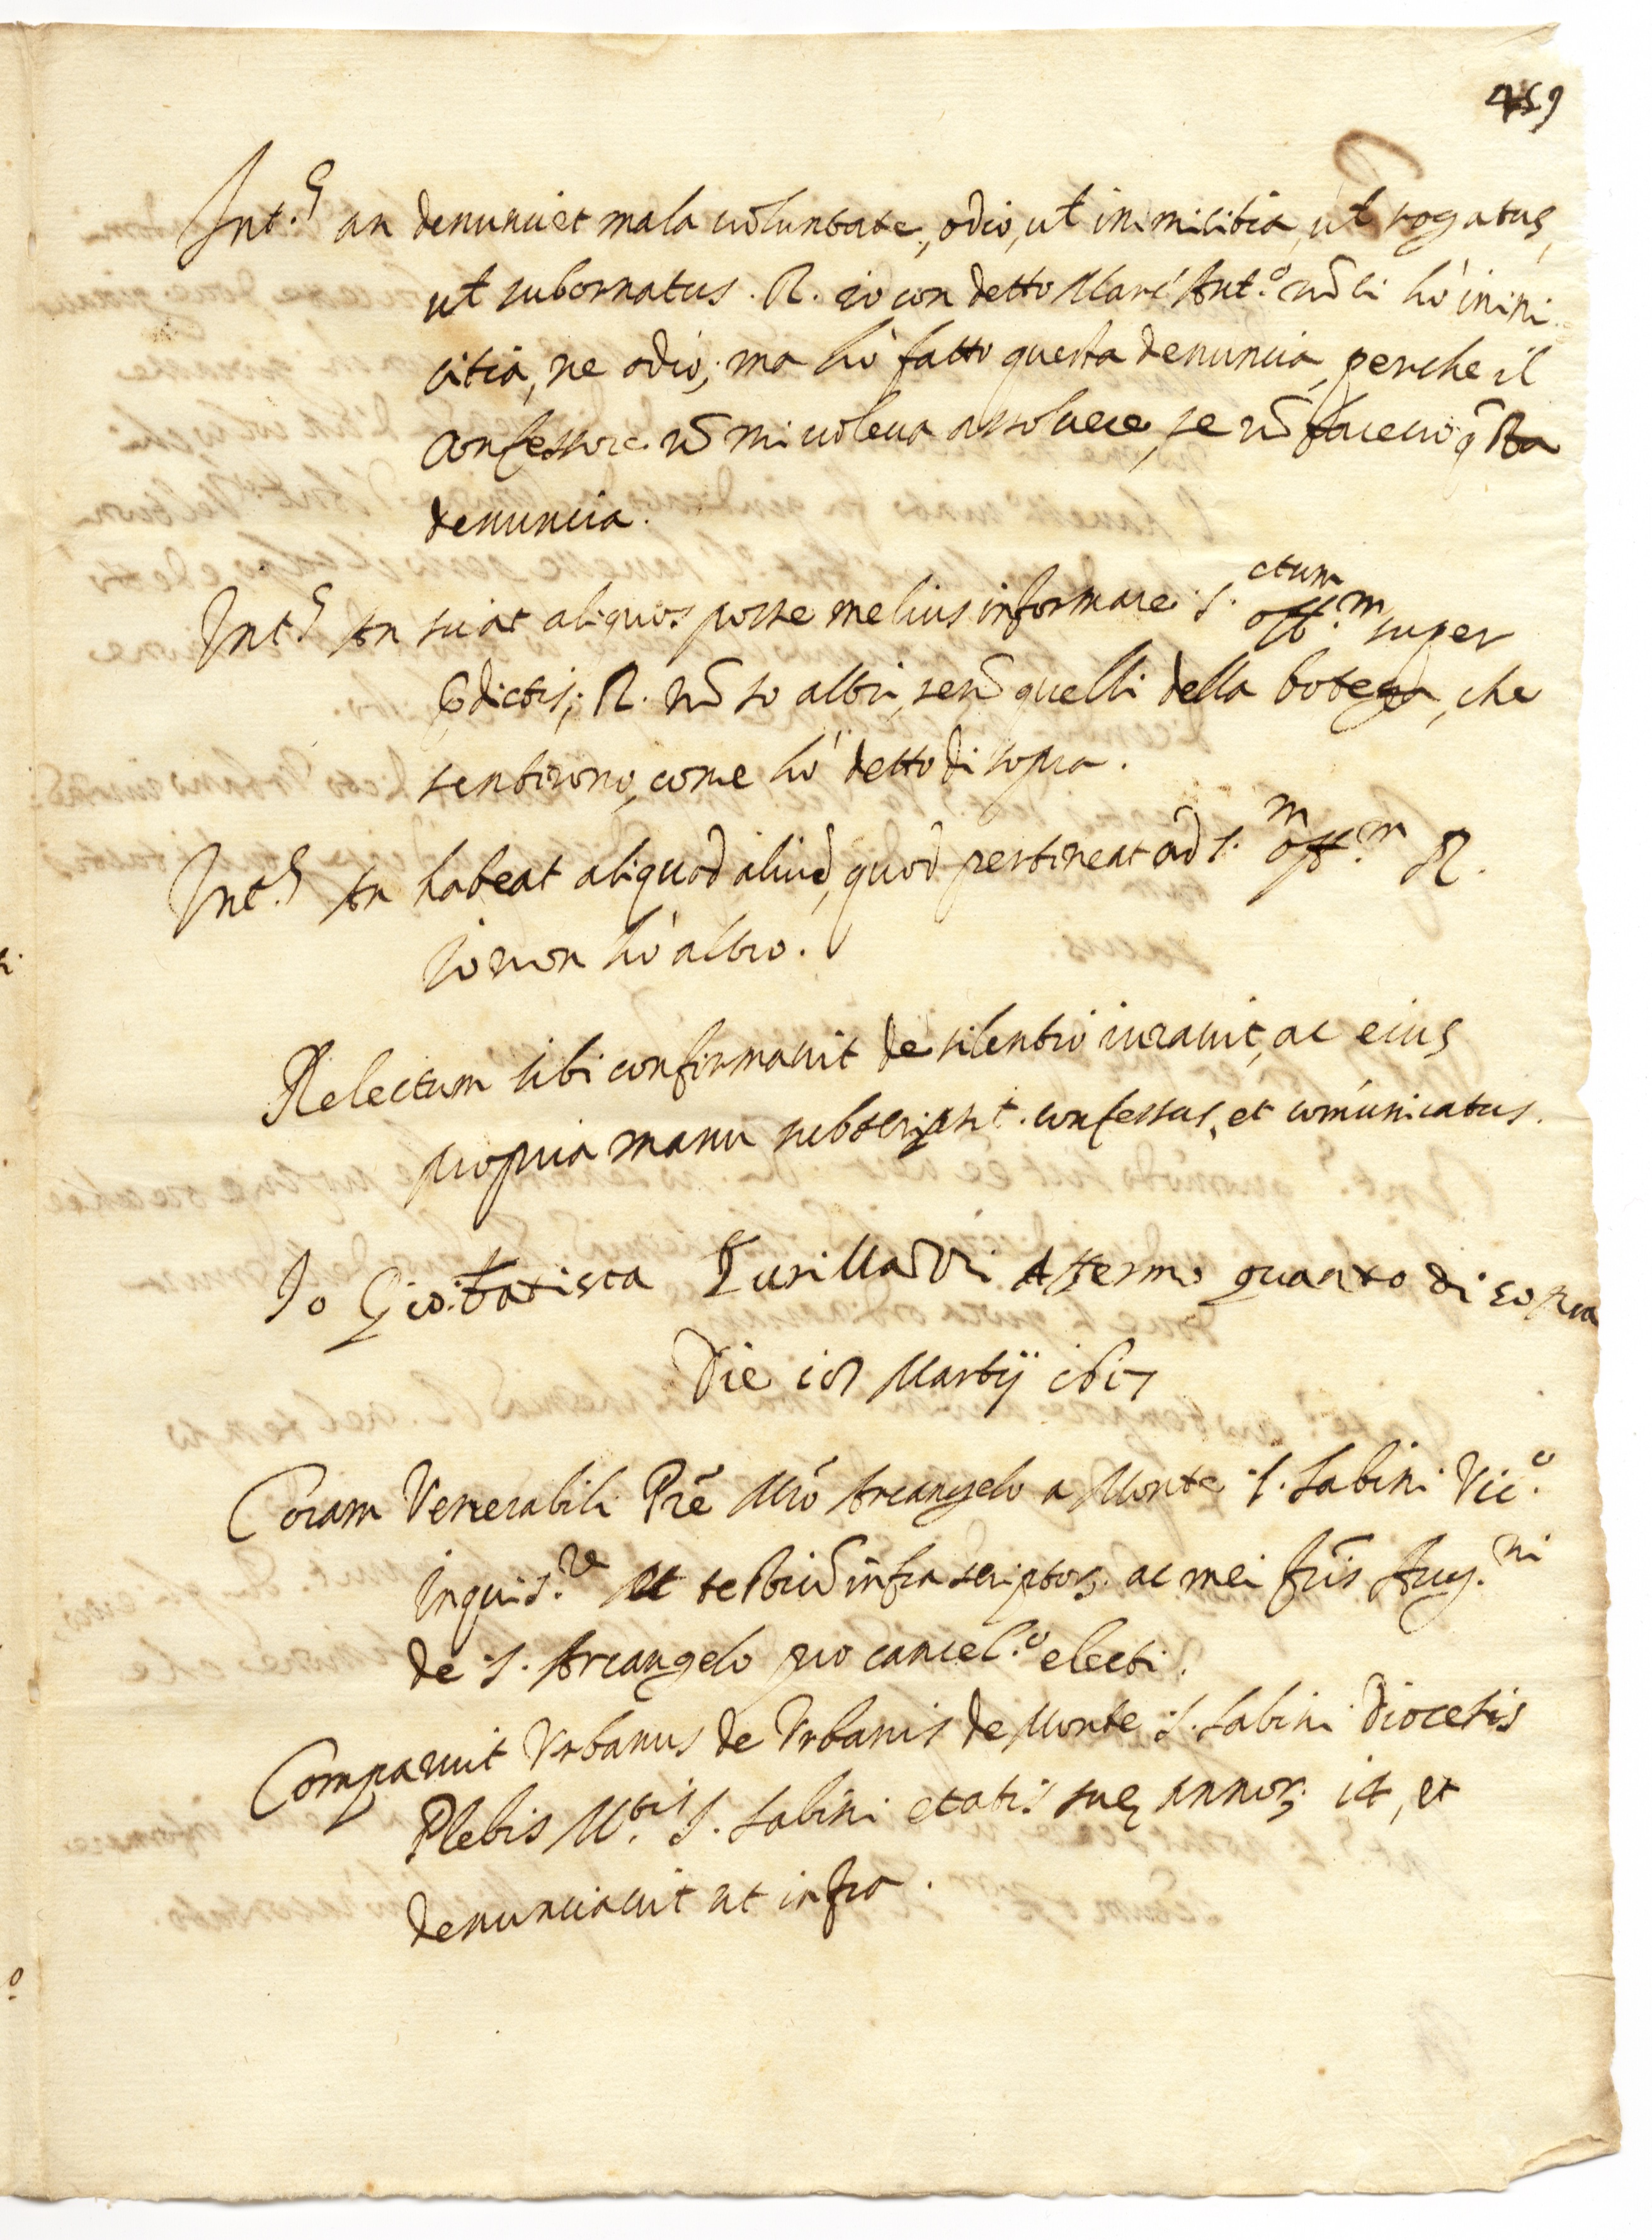 459
Int.s an denunciet mala uoluntate, odio, ut inimicitia, ut rogatus,
ut subornatus. R. io con detto Marc' Ant.o nō li hò inimi
citia, ne odio; ma hò fatto questa denuncia, perche il
Confessore nō mi uoleua assoluere, se nō faceuo q̄sta
denuncia.
Int.s An sciat aliquos posse melius informare S. ctum off.m super
p̄dictis; R. nō so altri, senō quelli della botega, che
sentirono, come hò detto di sopra.
Int.s An habeat aliquod aliud, quod pertineat ad S. m off.m R.
Io non hò altro.
Relectum sibi confirmauit de silentio iurauit, ac eius
propria manu subscripsit. confessus, et comūnicatus.
Io Gio: batista Affermo quanto di sopra
Die 10 Martij 1617
Coram Venerabili Prē Mrō Arcangelo a Monte S. Sabini Vic.o
Inquis.re et testiū infrascriptor. ac mei frīs Aug.ni
de S. Arcangelo pro cancel.o electi.
Comparuit Vrbanus de Vrbanis de Monte S. Sabini Diocesis
Plebis M.tis S. Sabini etatis suę annor. 14, et
denunciauit ut infra.